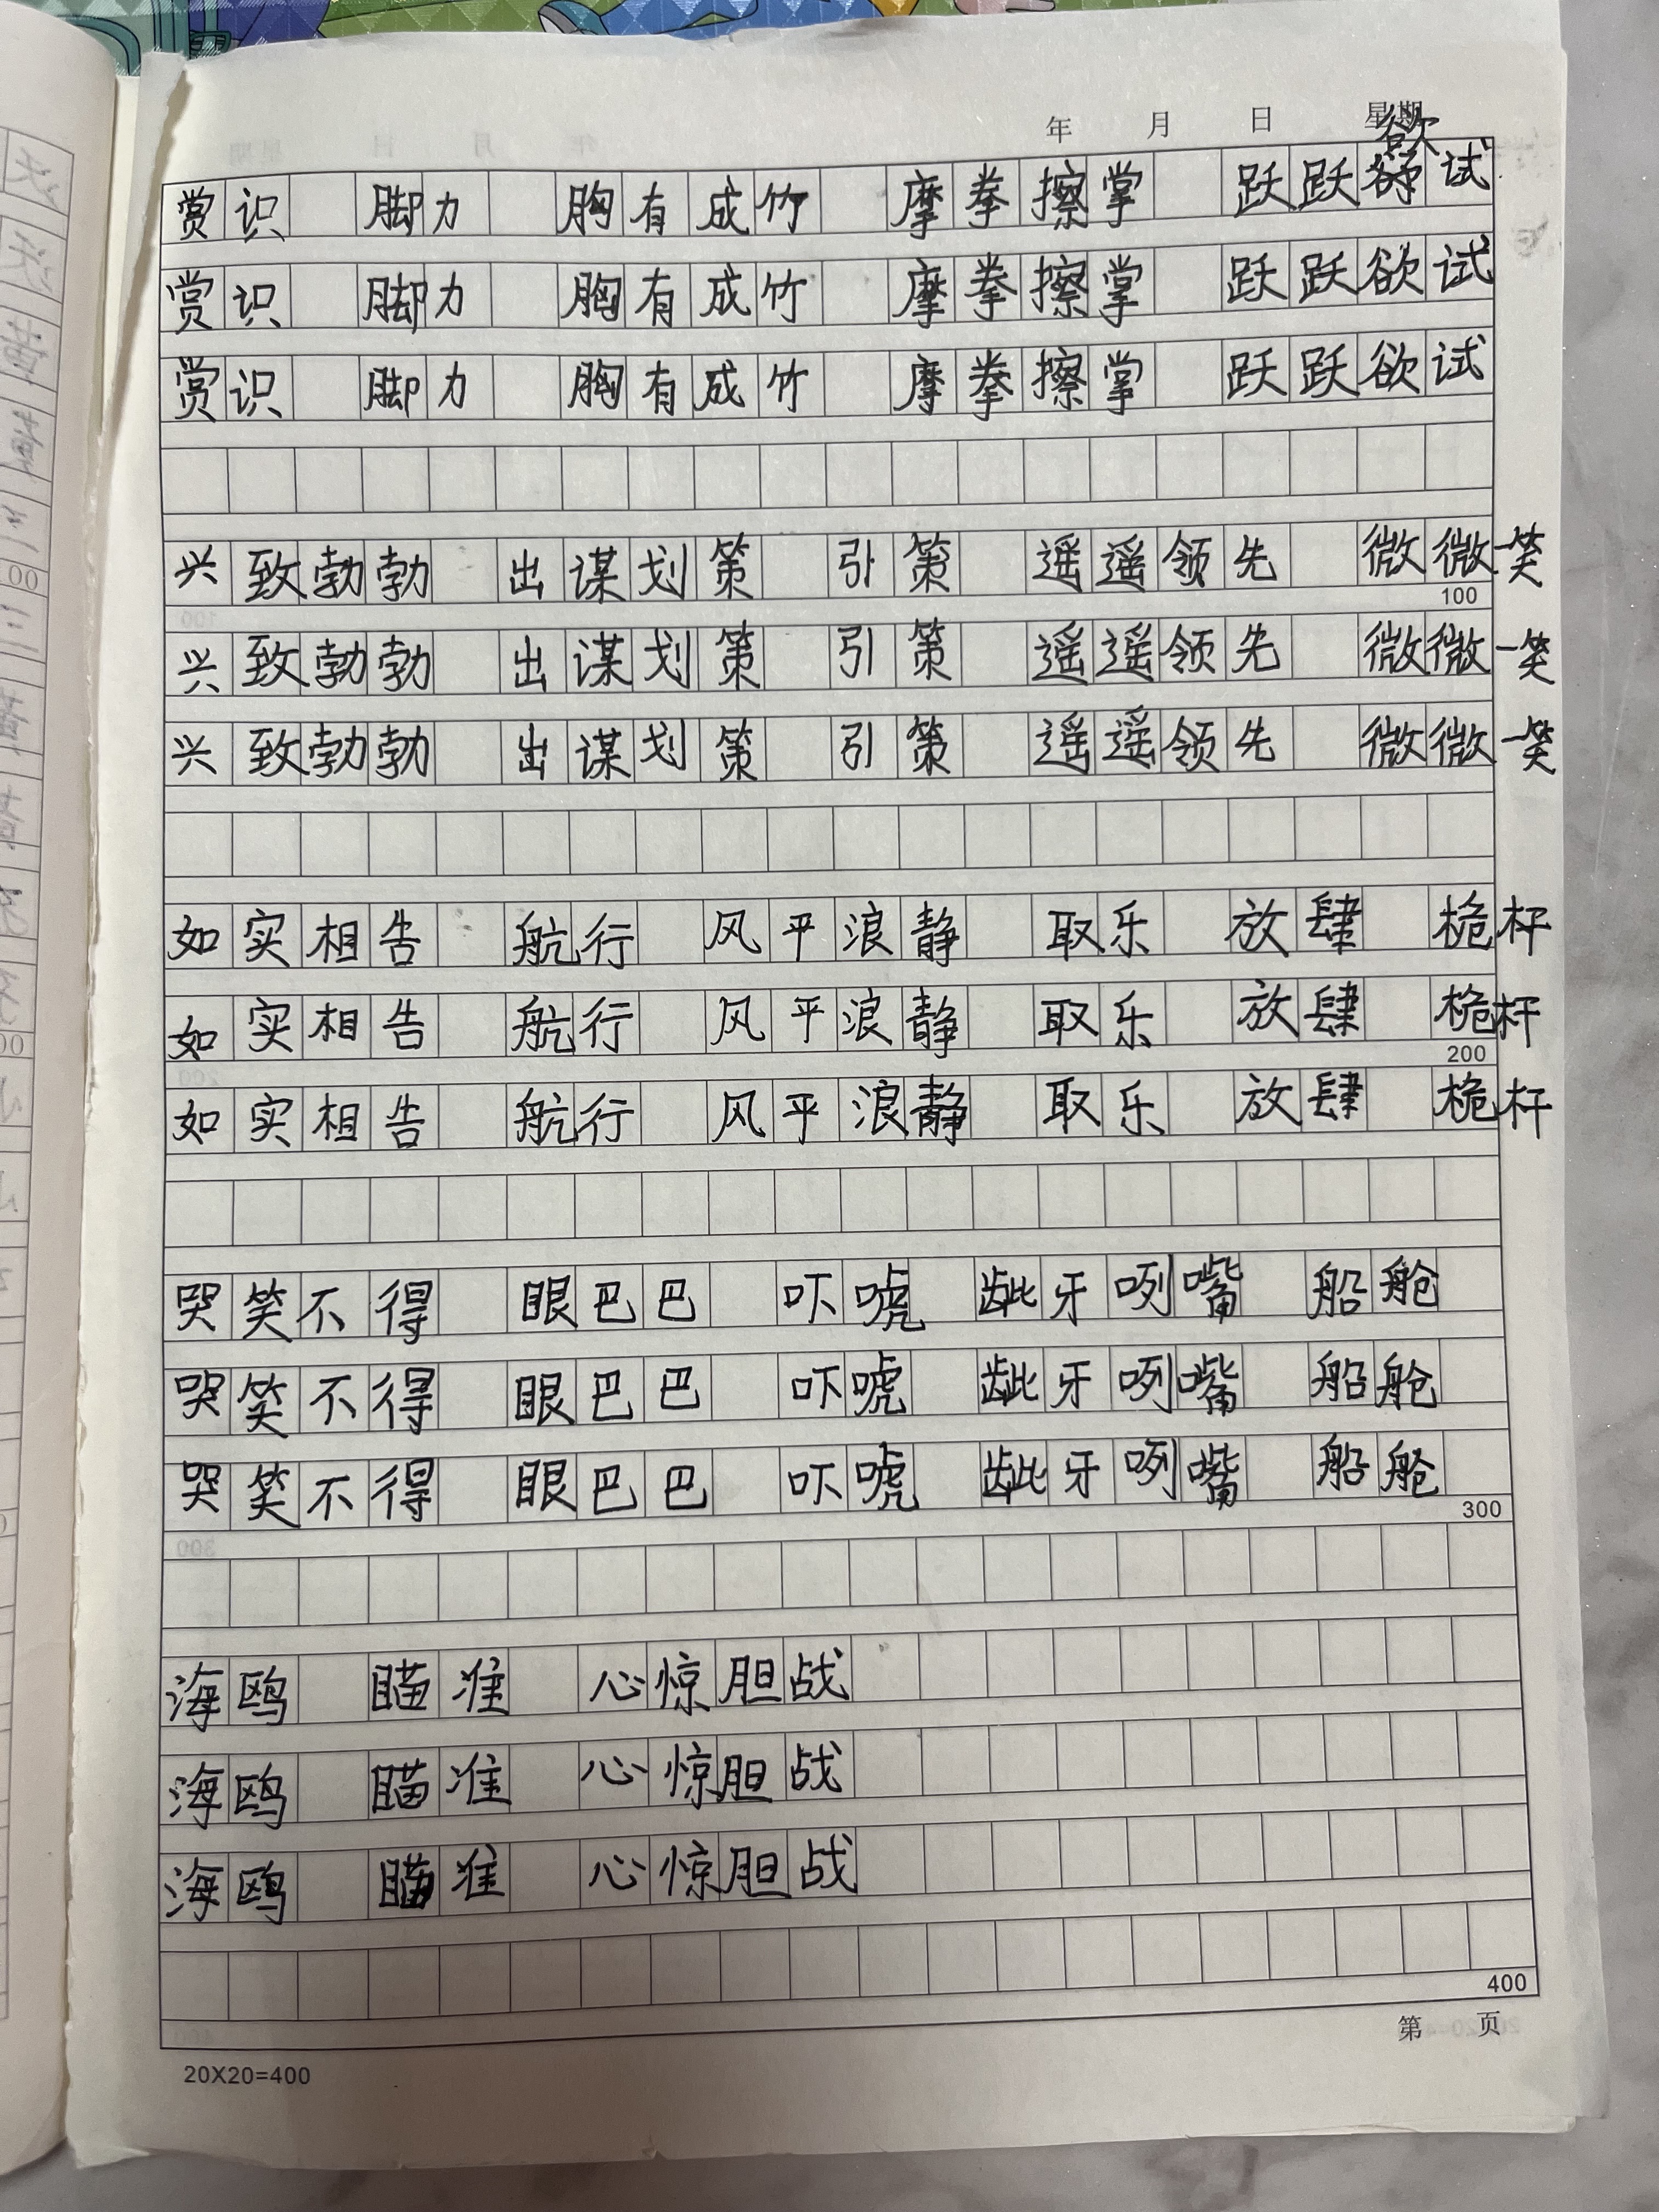 年 月 日 星期
欲
赏识 脚力 胸有成竹 摩拳擦掌 跃跃试
赏识 脚力 胸有成竹 摩拳擦掌 跃跃欲试
赏识 脚力 胸有成竹 摩拳擦掌 跃跃欲试
兴致勃勃 出谋划策 引策 遥遥领先 微微一笑
100
兴致勃勃 出谋划策 引策 遥遥领先 微微一笑
兴致勃勃 出谋划策 引策 遥遥领先 微微一笑
如实相告 航行 风平浪静 取乐 放肆 桅杆
如实相告 航行 风平浪静 取乐 放肆 桅杆
200
如实相告 航行 风平浪静 取乐 放肆 桅杆
哭笑不得 眼巴巴 吓唬 龇牙咧嘴 船舱
哭笑不得 眼巴巴 吓唬 龇牙咧嘴 船舱
哭笑不得 眼巴巴 吓唬 龇牙咧嘴 船舱
300
海鸥 瞄准 心惊胆战
海鸥 瞄准 心惊胆战
海鸥 瞄准 心惊胆战
400
第 页
20X20=400